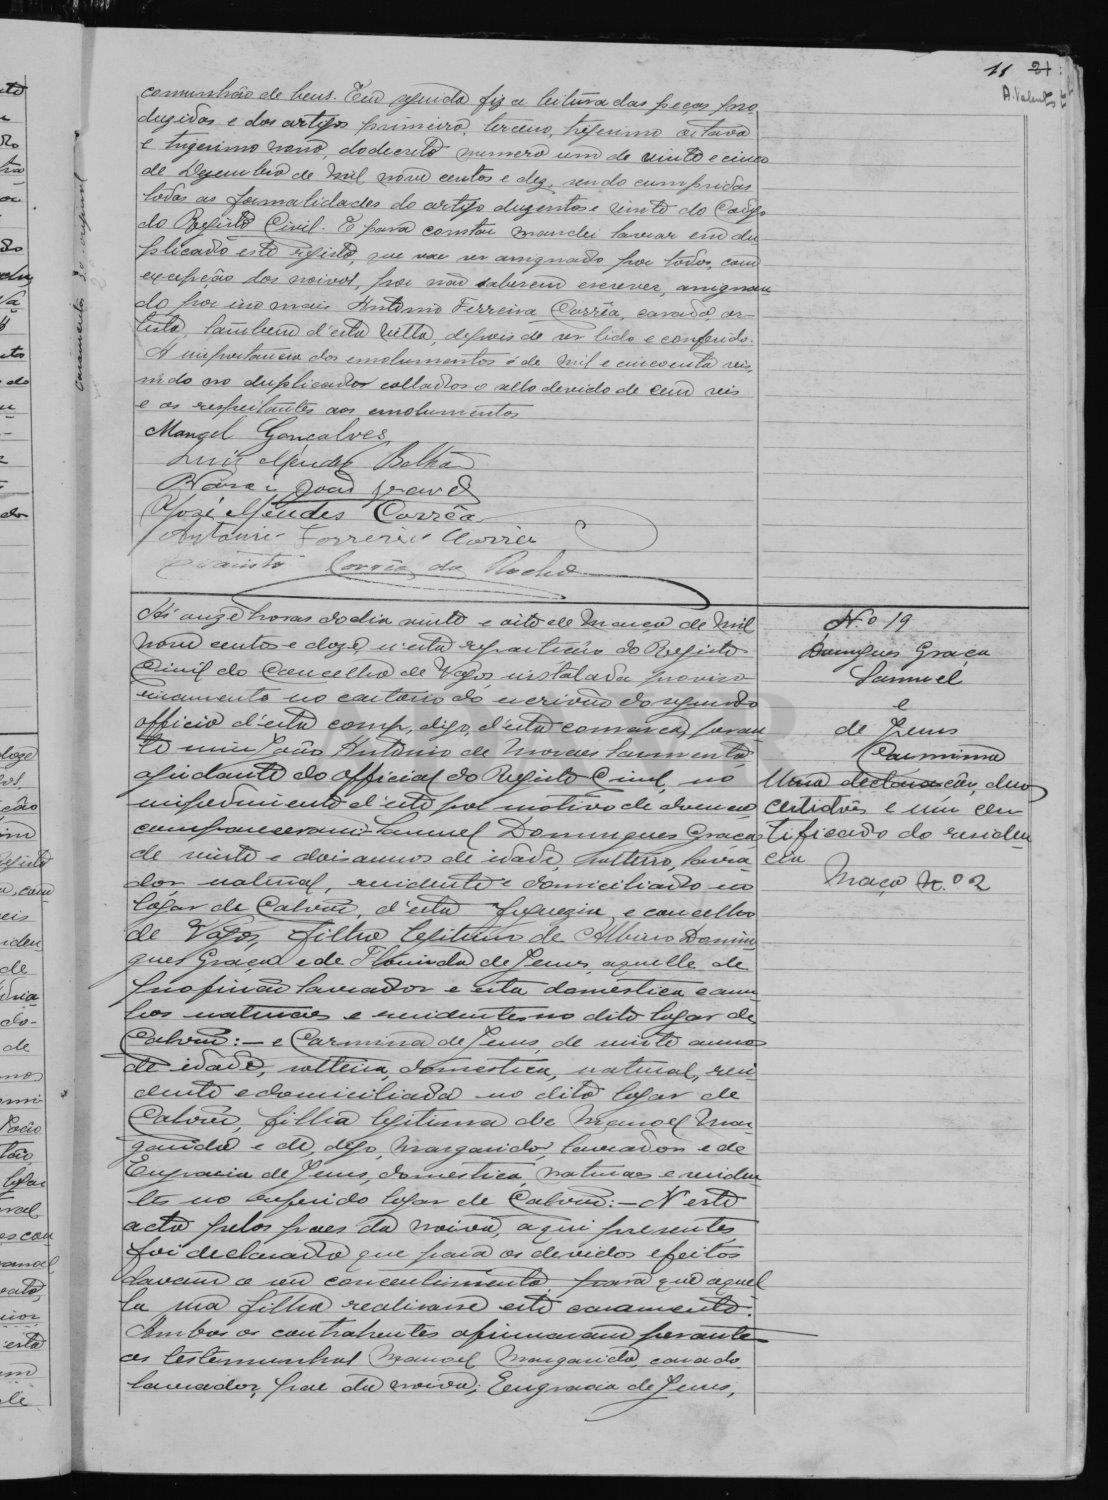 11 21
A. Valente
comunhão de bens. Em seguida fiz a leitura das peças pro
dugidas e dos artigos primeiro, terceiro, trigesimo oitavo
e trigesimo nono, do decreto numero um de vinte e cinco
de Dezembro de mil nove centos e dez, sendo cumpridas
todas as formalidades do artigo duzentos e vinte do Codigo
do Registo Civil. E para constar mandei lavrar em du
plicado este registo, que vae ser assignado por todos, com
excepção dos noivos, por não saberem escrever, assignan
do por isso mais Antonio Ferreira Corrêa, casado, ar-
tista, tambem d'esta villa, depois de ser lido e conferido.
A importancia dos emolumentos é de mil e cincoenta reis,
sendo no duplicado collados o sello devido de cem reis
e os respeitantes aos emolumentos
Manoel Gonçalves
Luiz Mendes Bolhão
João
José Mendes Corrêa
Antonio Ferreira Corrêa
Corrêa da Rocha
Ás onze horas do dia vinte e oito de Março de mil
nove centos e doze n'esta repartição do Registo
Civil do Concelho de Vagos, installada proviso
riamente no cartorio do escrivão do segundo
officio d'esta comp, digo, d'esta comarca, peran
te mim João Antonio de Moraes Sarmento
ajudante do official do Registo Civil, no
impedimento d'este por motivo de doença
compareceram:- Samuel Domingues Graça,
de vinte e dois annos de idade, solteiro, lavra
dor, natural, residente e domiciliado no
logar de Calvão, d'esta freguezia e concelho
de Vagos, filho legitimo de Albino Domin
gues Graça e de Florinda de Jesus, aquelle de
profissão lavrador e esta domestica e am
bos naturaes e residentes no dito logar de
Calvão:- e Carmina de Jesus, de vinte annos
de idade, solteira, domestica, natural, resi
dente e domiciliada no dito logar de
Calvão, filha legitima de Manoel Mar
garida e de, digo, Margarido, lavrador e de
Engracia de Jesus, domestica, naturaes e residen
tes no referido logar de Calvão:- N'este
acto pelos paes da noiva, aqui presentes
foi declarado que para os devidos efeitos
davam o seu consentimento para que aquel
la sua filha realisasse este casamento.
Ambos os contrahentes afirmaram perante
as testemunhas Manoel Margarido, casado
lavrador, pae da noiva; Engracia de Jesus,
N.º 19
Domingues Graça
Samuel
e
de Jesus
Carmina
Uma declaração, duas
certidões e um cer
tificado de residen
cia
Maço N.º 2